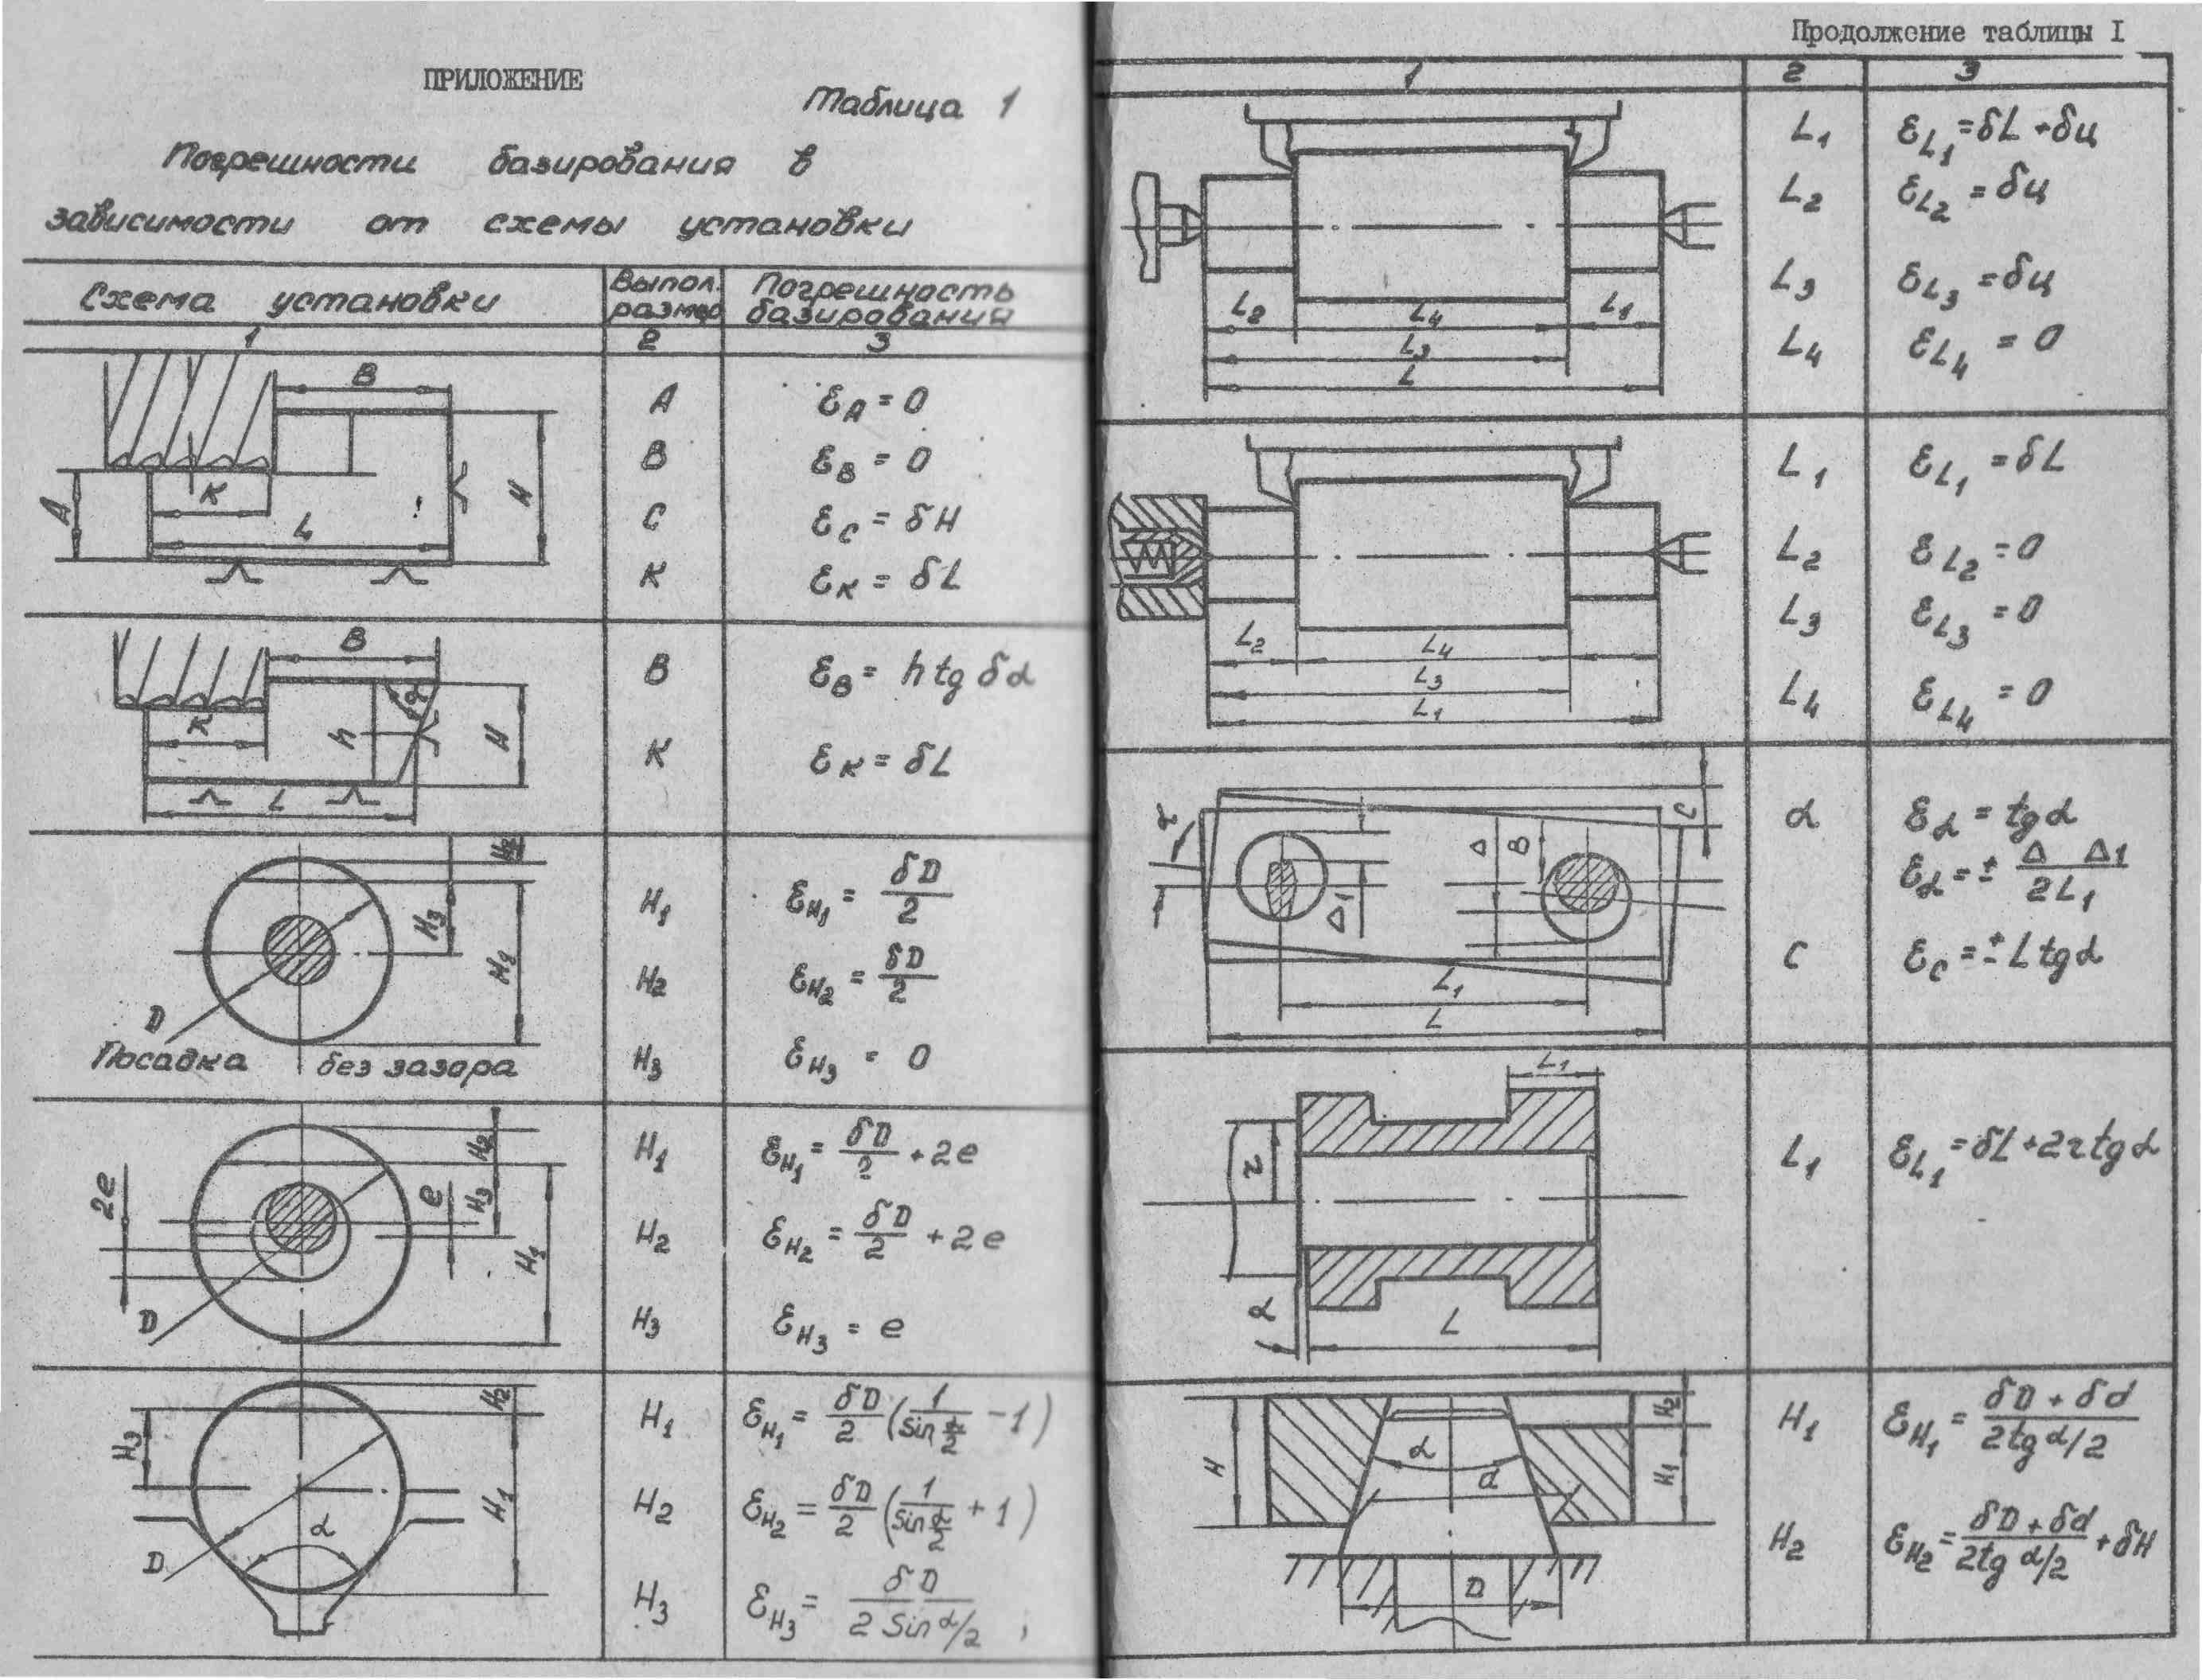 ПРИЛОЖЕНИЕ
Таблица 1
Погрешности базирования в
зависимости от схемы установки
Схема установки
Выпол. размер
Погрешность базирования
1 2 3
B
K
L
A
H
A ε_A = 0
B ε_B = 0
C ε_C = δH
K ε_K = δL
B
K
h
α
H
L
B ε_B = h tg δα
K ε_K = δL
H₂
H₃
H₁
D
Посадка без зазора
H₁ ε_H₁ = δD/2
H₂ ε_H₂ = δD/2
H₃ ε_H₃ = 0
2e
e
H₂
H₃
H₁
D
H₁ ε_H₁ = δD/2 + 2e
H₂ ε_H₂ = δD/2 + 2e
H₃ ε_H₃ = e
H₂
H₃
H₁
α
D
H₁ ε_H₁ = δD/2 (1/sin α/2 - 1)
H₂ ε_H₂ = δD/2 (1/sin α/2 + 1)
H₃ ε_H₃ = δD/2 Sin α/2
Продолжение таблицы I
1 2 3
L₂ L₄ L₁
L₃
L
L₁ ε_L₁ = δL + δц
L₂ ε_L₂ = δц
L₃ ε_L₃ = δц
L₄ ε_L₄ = 0
L₂ L₄
L₃
L₁
L₁ ε_L₁ = δL
L₂ ε_L₂ = 0
L₃ ε_L₃ = 0
L₄ ε_L₄ = 0
α
Δ
B
C
Δ₁
L₁
L
α ε_α = tg α
ε_α = ± Δ Δ1/2L₁
C ε_C = ± L tg α
L₁
r
α
L
L₁ ε_L₁ = δL + 2r tg α
H
α
d
H₂
H₁
D
H₁ ε_H₁ = δD + δd/2tg α/2
H₂ ε_H₂ = δD + δd/2tg α/2 + δH